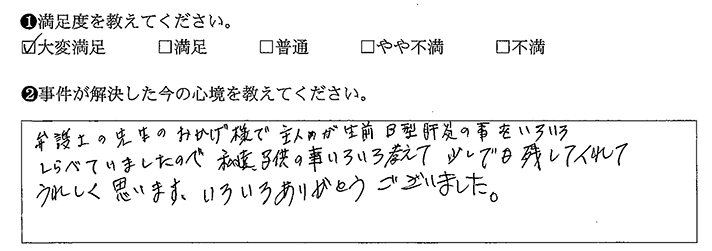 ❶満足度を教えてください。
☑大変満足 □満足 □普通 □やや不満 □不満
❷事件が解決した今の心境を教えてください。
弁護士の先生のおかげ様で 主人が生前 B型肝炎の事をいろいろ
しらべていましたので 私達、子供の事いろいろ考えて 少しでも残してくれて
うれしく思います。いろいろありがとうございました。